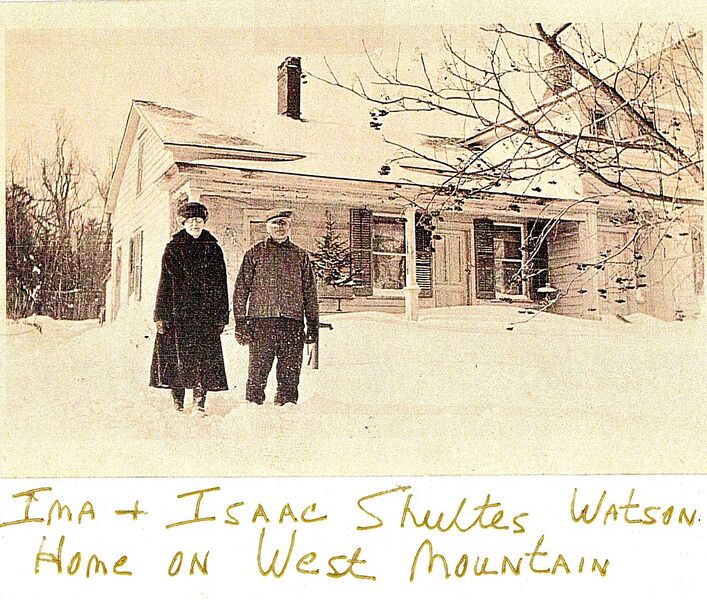 Ima + Isaac Shultes Watson
Home on West Mountain